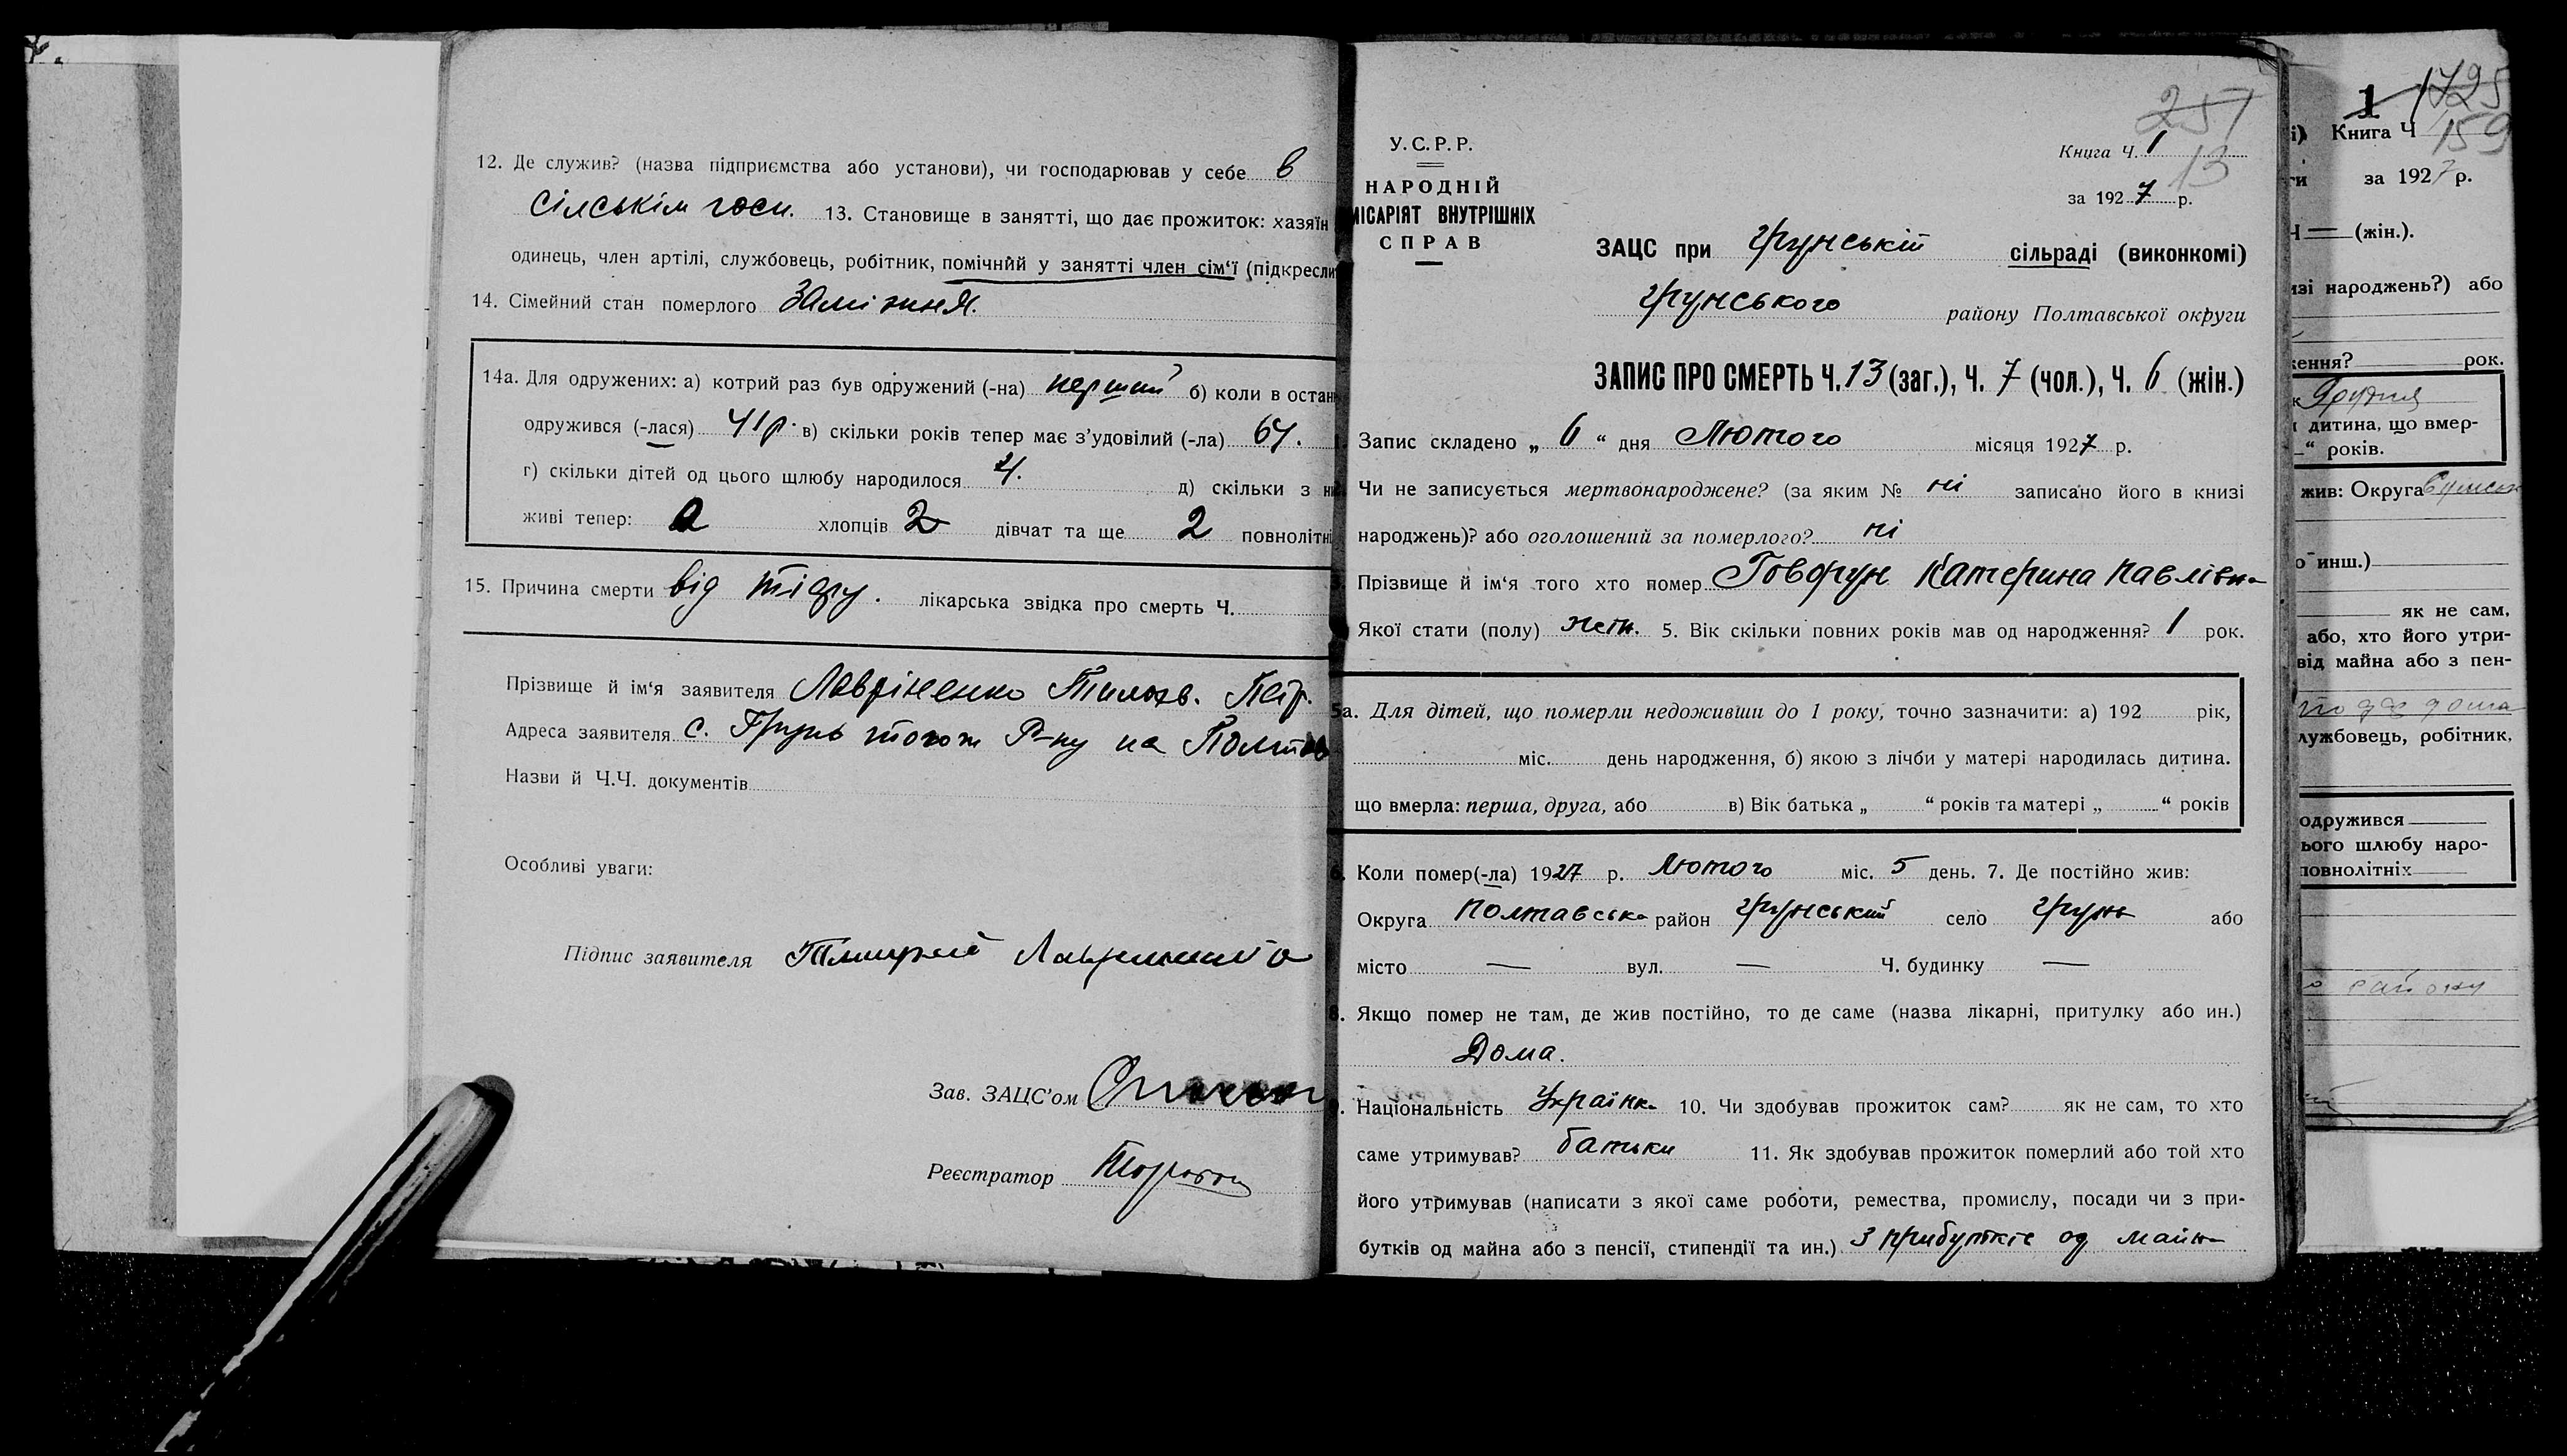 12. Де служив? (назва підприємства або установи), чи господарював у себе в
сілськім госп. 13. Становище в занятті, що дає прожиток: хазяїн
одинець, член артілі, службовець, робітник, помічний у занятті член сім'ї (підкресли
14. Сімейний стан померлого Заміжня.
14а. Для одружених: а) котрий раз був одружений (-на) перший б) коли в остан
одружився (-лася) 41р. в) скільки років тепер має з'удовілий (-ла) 64.
г) скільки дітей од цього шлюбу народилося 4. д) скільки з ни
живі тепер: хлопців 2 дівчат та ще 2 повнолітні
15. Причина смерти від тіфу. лікарська звідка про смерть Ч.
Прізвище й ім'я заявителя Лавріненко Тимох. Петр.
Адреса заявителя с. Грунь тогож Р-ну на Полтав
Назви й Ч.Ч. документів
Особливі уваги:
Підпис заявителя
Зав. ЗАЦС'ом
Реєстратор
У.С.Р.Р.
НАРОДНІЙ
МІСАРІЯТ ВНУТРІШНІХ
СПРАВ
257
Книга Ч. 1
13
за 1927 р.
ЗАЦС при Грунській сільраді (виконкомі)
Грунського району Полтавської округи
ЗАПИС ПРО СМЕРТЬ Ч. 13 (заг.), Ч. 7 (чол.), Ч. 6 (жін.)
Запис складено „ 6 “ дня Лютого місяця 1927 р.
Чи не записується мертвонароджене? (за яким № ні записано його в книзі
народжень)? або оголошений за померлого? ні
Прізвище й ім'я того хто помер Говорун Катерина Павлівна
Якої стати (полу) жін. 5. Вік скільки повних років мав од народження? 1 рок.
5а. Для дітей, що померли недоживши до 1 року, точно зазначити: а) 192 рік,
міс. день народження, б) якою з лічби у матері народилась дитина.
що вмерла: перша, друга, або в) Вік батька „ “ років та матері „ “ років
6. Коли помер(-ла) 1927 р. Лютого міс. 5 день. 7. Де постійно жив:
Округа Полтавська район Грунський село Грунь або
місто — вул. — Ч. будинку —
8. Якщо помер не там, де жив постійно, то де саме (назва лікарні, притулку або ин.)
Дома.
9. Національність Українка 10. Чи здобував прожиток сам? як не сам, то хто
саме утримував? батьки 11. Як здобував прожиток померлий або той хто
його утримував (написати з якої саме роботи, ремества, промислу, посади чи з при-
бутків од майна або з пенсії, стипендії та ин.) З прибутків од майна
1 1725
і) Книга Ч 159
ги за 1927 р.
Ч — (жін.).
изі народжень?) або
ження? рок.
дитина, що вмер-
“ років.
жив: Округа
о инш.)
як не сам,
або, хто його утри-
від майна або з пен-
лужбовець, робітник,
одружився
ього шлюбу наро-
повнолітніх
району